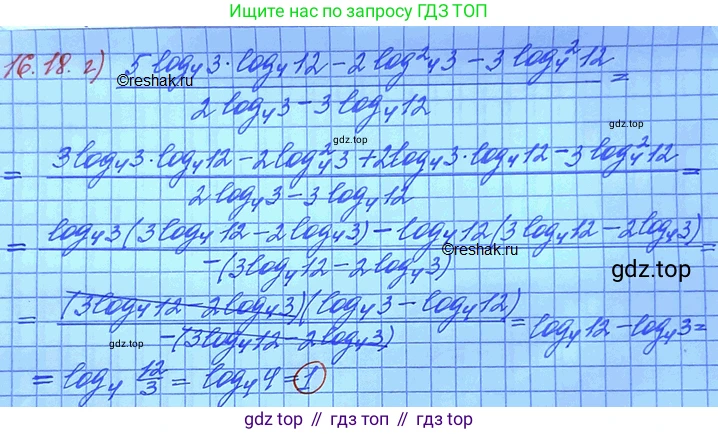 Ищите нас по запросу ГДЗ ТОП
16.18. г) (5 log₄3 · log₄12 − 2 log²₄3 − 3 log₄²12) / (2 log₄3 − 3 log₄12) =
©reshak.ru
gdz.top
= (3 log₄3 · log₄12 − 2 log₄²3 + 2 log₄3 · log₄12 − 3 log₄²12) / (2 log₄3 − 3 log₄12) =
gdz.top
= (log₄3 (3 log₄12 − 2 log₄3) − log₄12 (3 log₄12 − 2 log₄3)) / (−(3 log₄12 − 2 log₄3)) =
©reshak.ru
gdz.top
= ((3 log₄12 − 2 log₄3)(log₄3 − log₄12)) / (−(3 log₄12 − 2 log₄3)) = log₄12 − log₄3 =
gdz.top
= log₄ 12/3 = log₄4 = 1
gdz.top // гдз.топ // gdz.top